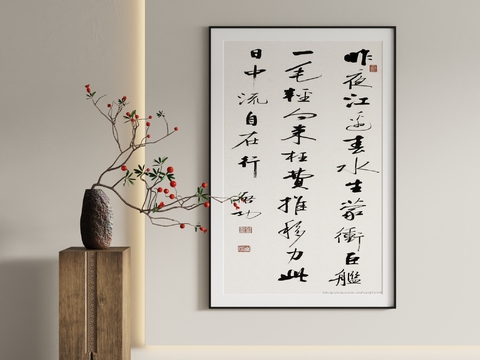 昨夜江邊春水生蒙衝巨艦
一毛輕向來枉費推移力此
日中流自在行
啟功